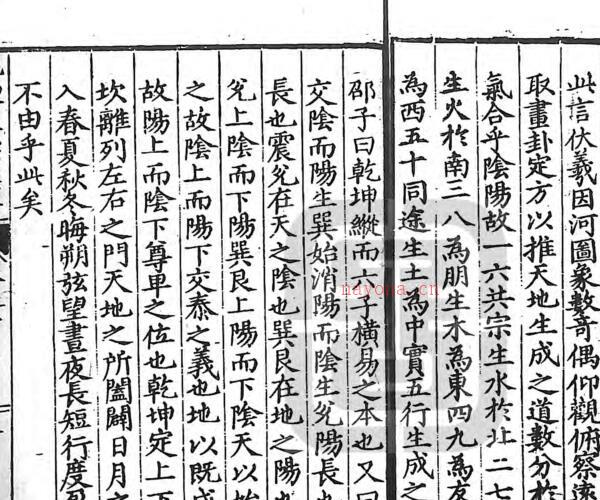 此言伏羲因河圖象數奇偶仰觀俯察遠
取畫卦定方以推天地生成之道數分於
氣合乎陰陽故一六共宗生水於北二七
生火於南三八為朋生木為東四九為友
為西五十同途生土為中實五行生成之
邵子曰乾坤縱而六子橫易之本也又曰
交陰而陽生巽始消陽而陰生兊陽長也
長也震兊在天之陰也巽艮在地之
兊上陰而下陽巽艮上陽而下陰天以始
之故陰上而陽下交泰之義也地以既成
故陽上而陰下尊卑之位也乾坤定上下
坎離列左右之門天地之所闔闢日月
入春夏秋冬晦朔弦望晝夜長短行度
不由乎此矣
nayona.cn